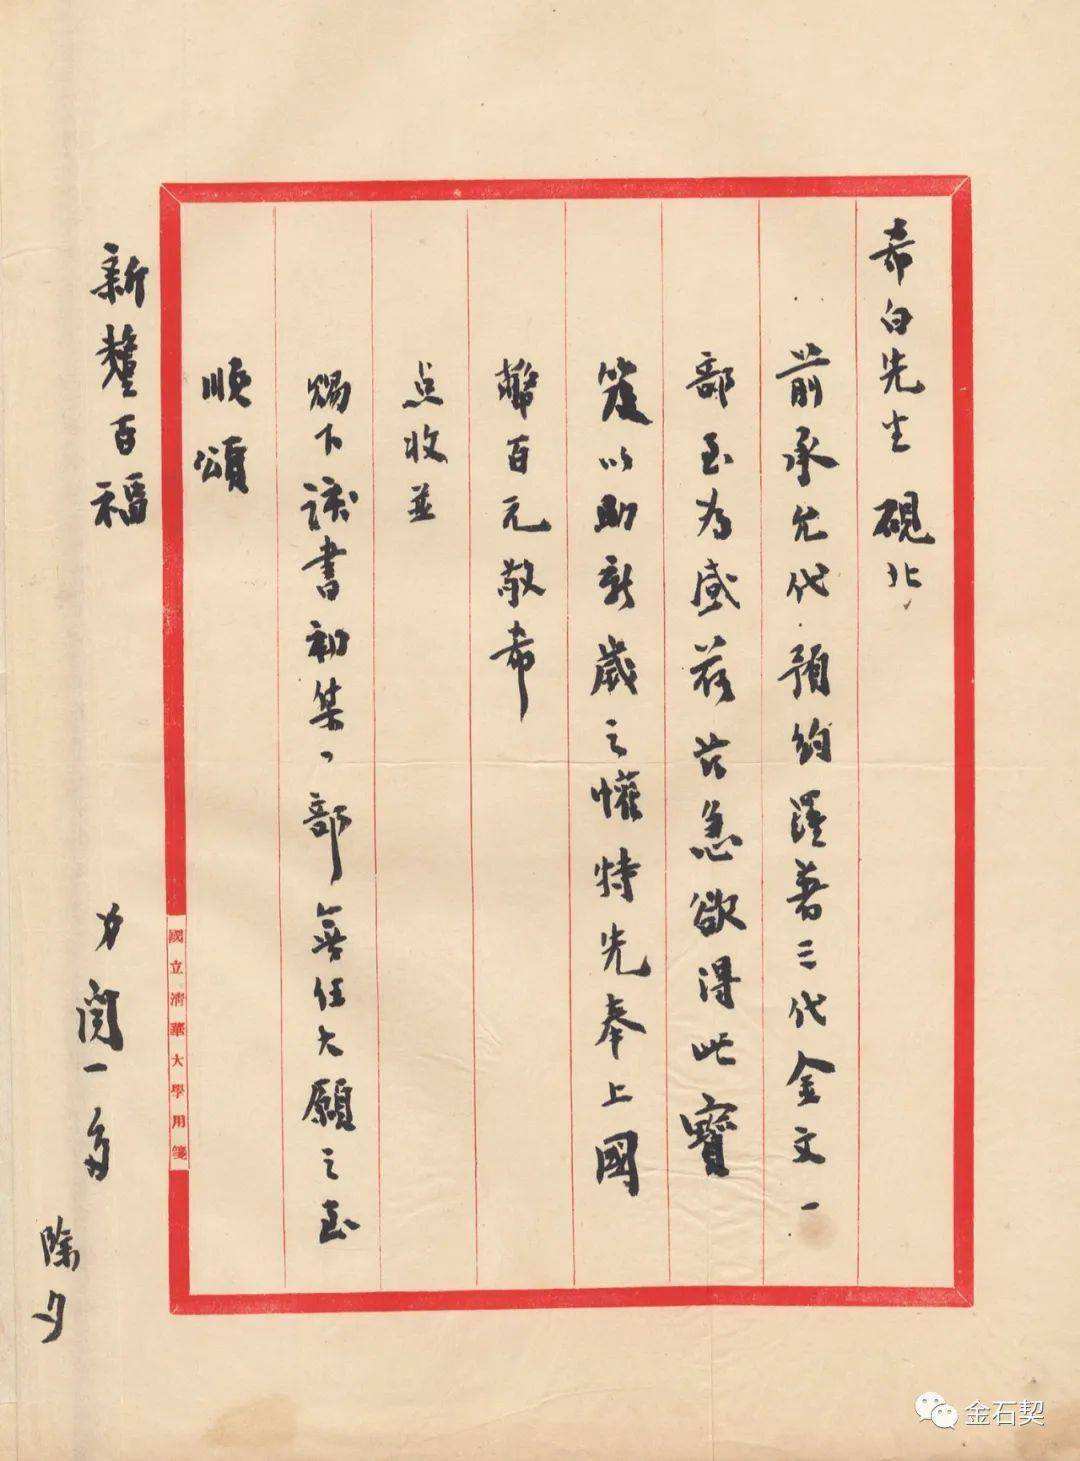 希白先生 硯北
前承允代預約羅著三代金文一
部至為感荷茲急欲得此寶
笈以助新歲之懽特先奉上國
幣百元敬希
点收並
賜下該書初集一部無任大願之至
順頌
新釐百福
弟聞一多
除夕
國立清華大學用箋
金石契